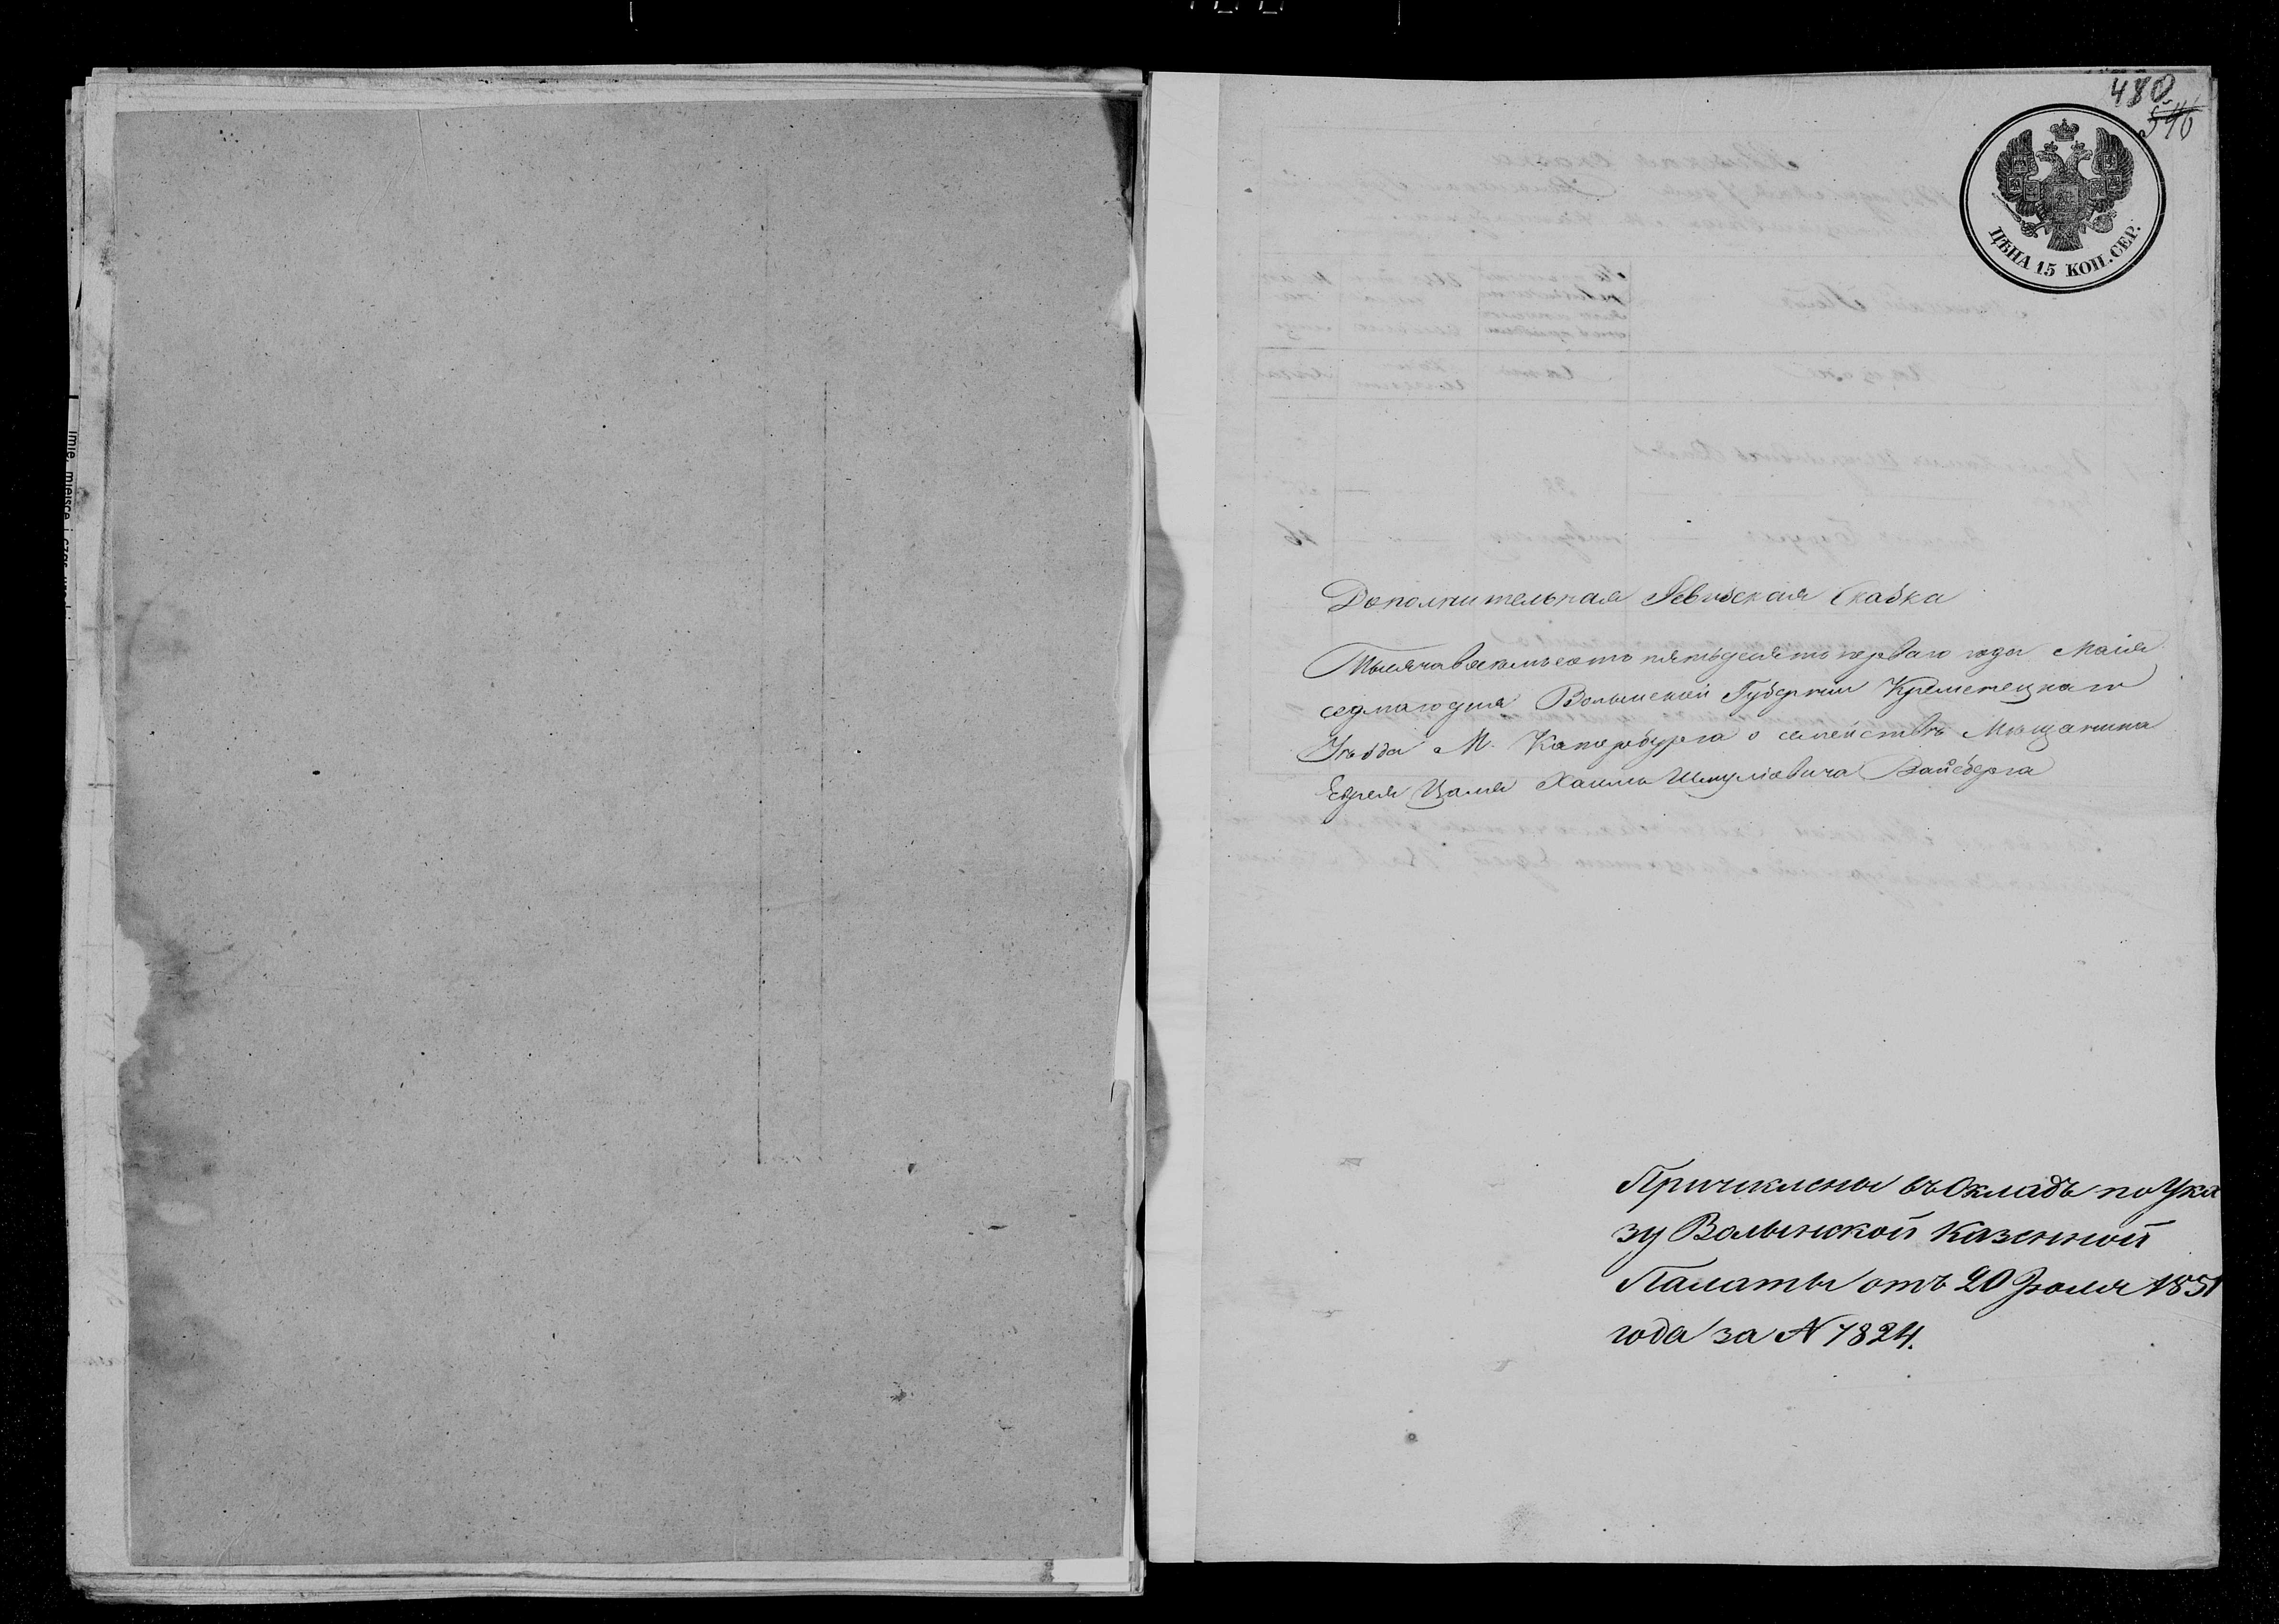 480
546
ЦѢНА 15 КОП. СЕР.
Дополнительная Ревизская Сказка
Тысяча восемьсотъ пятьдесятъ перваго года Маія
седмаго дня Волынской Губерніи Кременецкаго
Уѣзда М. Катербурга о семействѣ Мѣщанина
Еврея Хаима Шмуліовича Вайсберга
Причислены въ Окладъ по Ука
зу Волынской Казенной
Палаты отъ 20 Іюля 1851
года за N 7824.
Imie, miejsce i czas